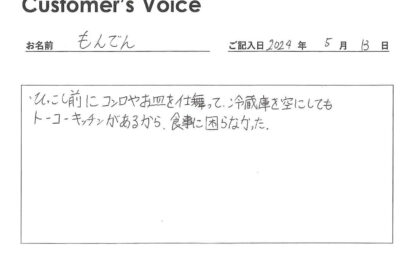 Customer's Voice
お名前 もんでん ご記入日 2024 年 5 月 13 日
・ひっこし前にコンロやお皿を仕舞って、冷蔵庫を空にしても
トーコーキッチンがあるから、食事に困らなかった.